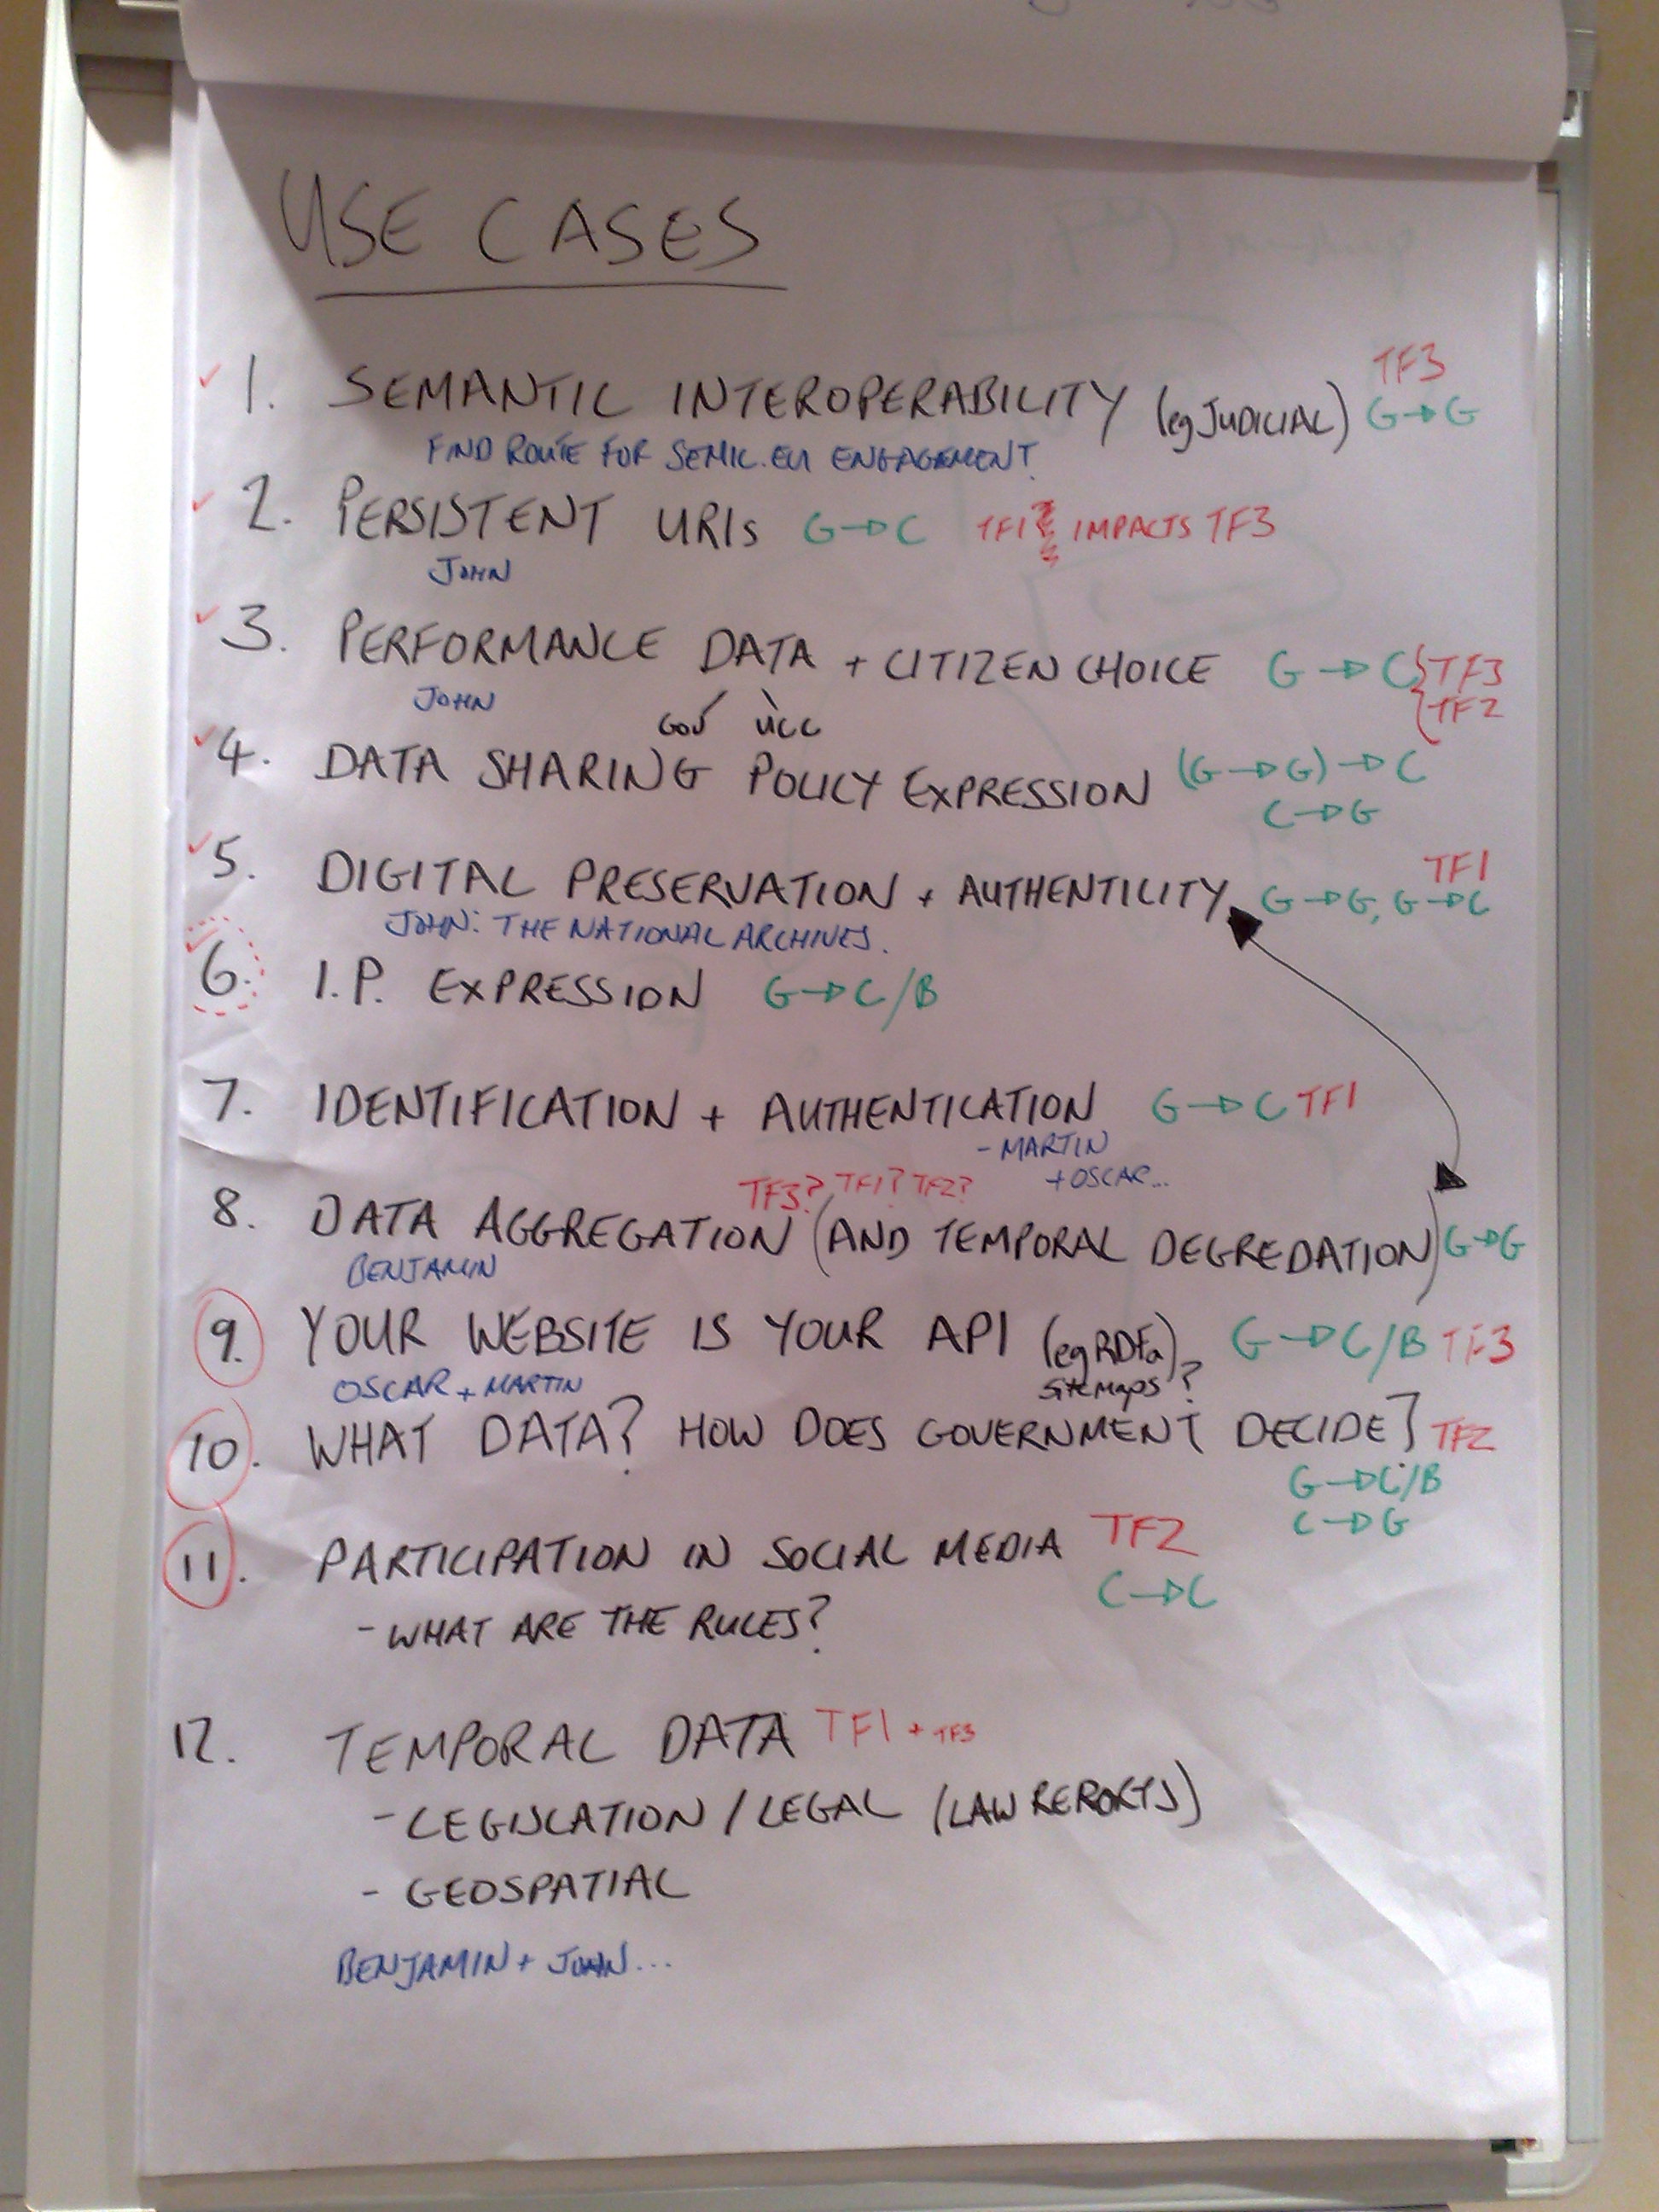 USE CASES
1. SEMANTIC INTEROPERABILITY (eg JUDICIAL) TF3 G→G
FIND ROUTE FOR SEMIC.EU ENGAGEMENT
2. PERSISTENT URIs G→C TF1 IMPACTS TF3
JOHN
3. PERFORMANCE DATA + CITIZEN CHOICE G→C TF3 TF2
JOHN
GOV UCC
4. DATA SHARING POLICY EXPRESSION (G→G)→C
C→G
5. DIGITAL PRESERVATION + AUTHENTICITY G→G, G→C TF1
JOHN: THE NATIONAL ARCHIVES.
6. I.P. EXPRESSION G→C/B
7. IDENTIFICATION + AUTHENTICATION G→C TF1
- MARTIN
+ OSCAR...
TF3? TF1? TF2?
8. DATA AGGREGATION (AND TEMPORAL DEGREDATION) G→G
BENJAMIN
9. YOUR WEBSITE IS YOUR API (eg RDFa) G→C/B TF3
OSCAR + MARTIN
SiteMaps ?
10. WHAT DATA? HOW DOES GOVERNMENT DECIDE? TF2
G→C/B
C→G
11. PARTICIPATION IN SOCIAL MEDIA TF2
C→C
- WHAT ARE THE RULES?
12. TEMPORAL DATA TF1 + TF3
- LEGISLATION / LEGAL (LAW REPORTS)
- GEOSPATIAL
BENJAMIN + JOHN...